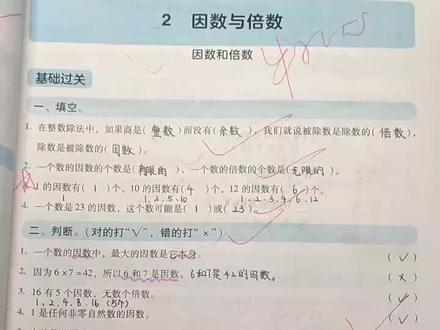 2 因数与倍数
因数和倍数
基础过关
一、填空。
1. 在整数除法中，如果商是（整数）而没有（余数），我们就说被除数是除数的（倍数），
除数是被除数的（因数）。
2. 一个数的因数的个数是（有限的），一个数的倍数的个数是（无限的）。
的因数有（1）个，10 的因数有（4）个，12 的因数有（6）个。
1 1.2.5.10 1.2.3.4.6.12
4. 一个数是 23 的因数，这个数可能是（1）或（23）。
二、判断。（对的打“√”，错的打“×”）
1. 一个数的因数中，最大的因数是它本身。（√）
2. 因为 6×7=42，所以 6 和 7 是因数。6和7是42的因数。（×）
3. 16 有 5 个因数，无数个倍数。
1、2、4、8、16（5个）
4. 1 是任何非零自然数的因数。